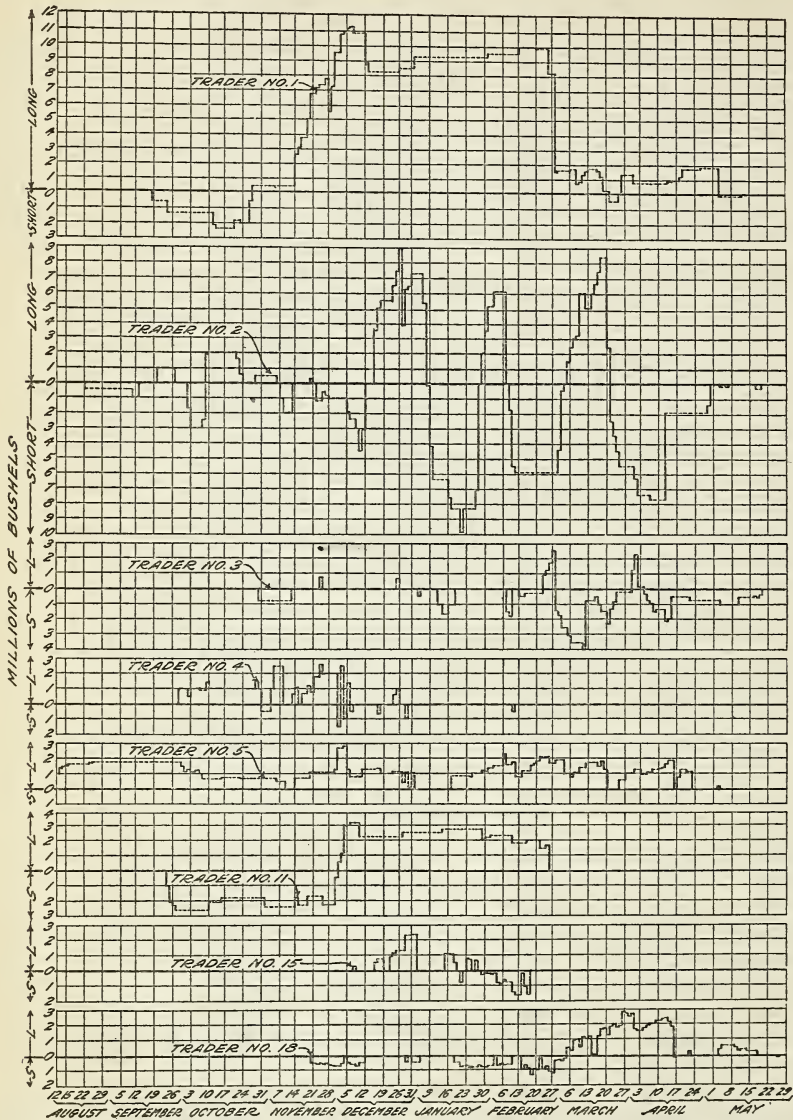 MILLIONS OF BUSHELS
12
11
10
9
8
7
6
5
4
3
2
1
0
1
2
3
LONG
SHORT
TRADER NO. 1
9
8
7
6
5
4
3
2
1
0
1
2
3
4
5
6
7
8
9
10
LONG
SHORT
TRADER NO. 2
3
2
1
0
1
2
3
4
L
S
TRADER NO. 3
3
2
1
0
1
2
L
S
TRADER NO. 4
3
2
1
0
1
L
S
TRADER NO. 5
4
3
2
1
0
1
2
3
L
S
TRADER NO. 11
3
2
1
0
1
2
L
S
TRADER NO. 15
3
2
1
0
1
2
L
S
TRADER NO. 18
12 15 22 29 5 12 19 26 3 10 17 24 31 7 14 21 28 5 12 19 26 31 9 16 23 30 6 13 20 27 6 13 20 27 3 10 17 24 1 8 15 22 29
AUGUST SEPTEMBER OCTOBER NOVEMBER DECEMBER JANUARY FEBRUARY MARCH APRIL MAY